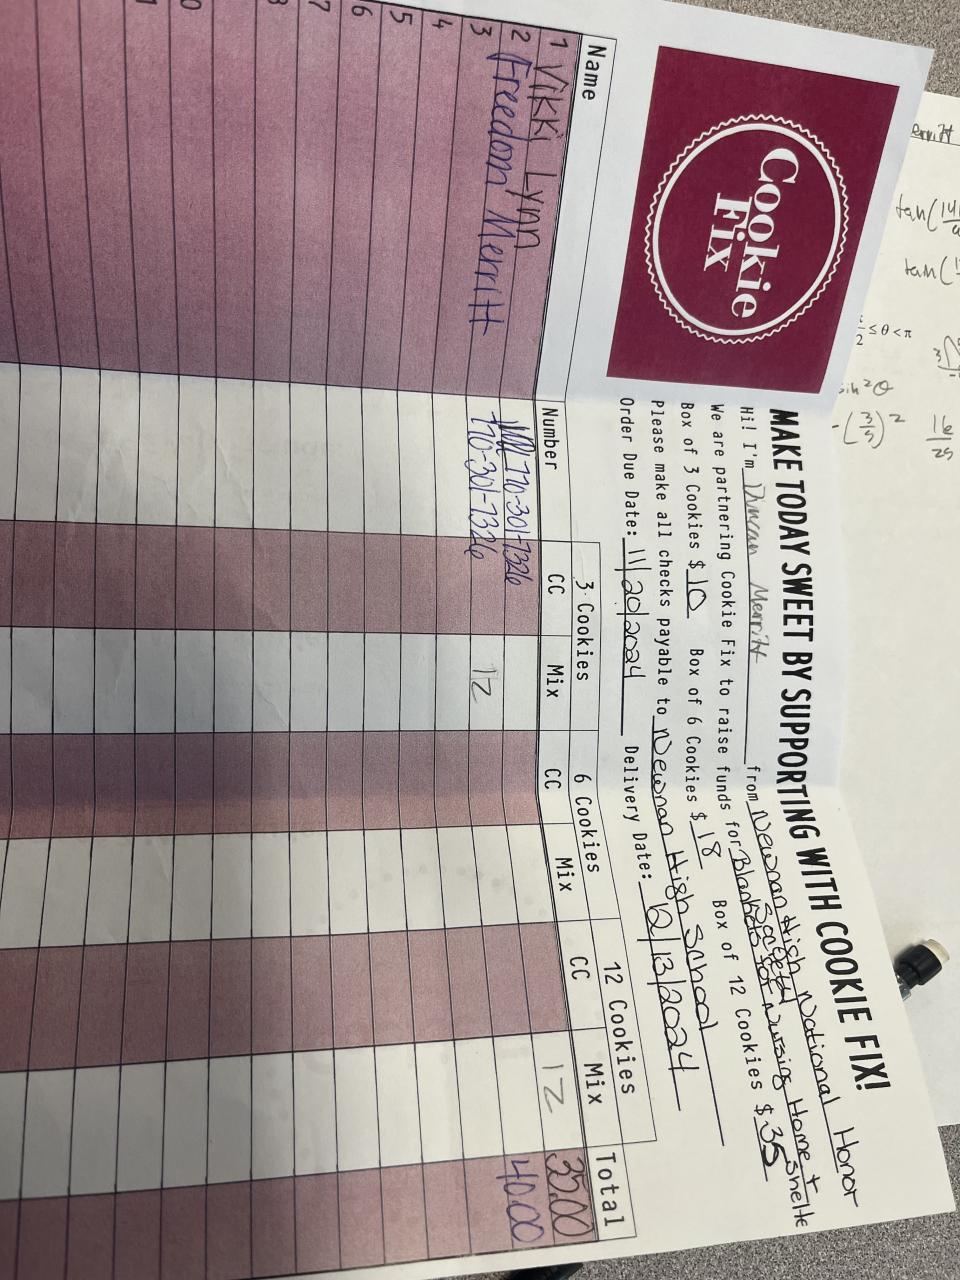 Cookie
Fix
MAKE TODAY SWEET BY SUPPORTING WITH COOKIE FIX!
Hi! I'm Duncan Merritt from Newnan High National Honor
Society
We are partnering Cookie Fix to raise funds for Blankets for Nursing Home + Shelte
Box of 3 Cookies $10 Box of 6 Cookies $18 Box of 12 Cookies $35
Please make all checks payable to Newnan High School
Order Due Date: 11/20/2024 Delivery Date: 12/13/2024
3 Cookies 6 Cookies 12 Cookies
Name Number CC Mix CC Mix CC Mix Total
1 Vikki Lynn 770-301-7326 12 35.00
2 Freedom Merritt 770-301-7326 12 40.00
3
4
5
6
7
8
0
1
erritt
tan(
tan(
≤θ<π
2
sin²θ
-(3/5)² 16/25